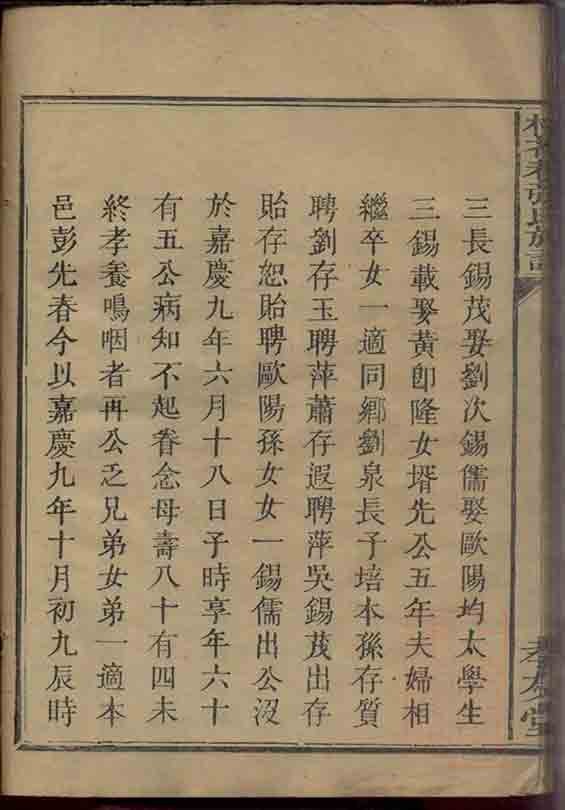 張氏族
孝友堂
三長錫茂娶劉次錫儒娶歐陽均太學生
三錫載娶黃卽隆女壻先公五年夫婦相
繼卒女一適同鄉劉泉長子培本孫存質
聘劉存玉聘萍蕭存遐聘萍吳錫茂出存
貽存恕貽聘歐陽孫女女一錫儒出公沒
於嘉慶九年六月十八日子時享年六十
有五公病知不起眷念母壽八十有四未
終孝養嗚咽者再公乏兄弟女弟一適本
邑彭先春今以嘉慶九年十月初九辰時